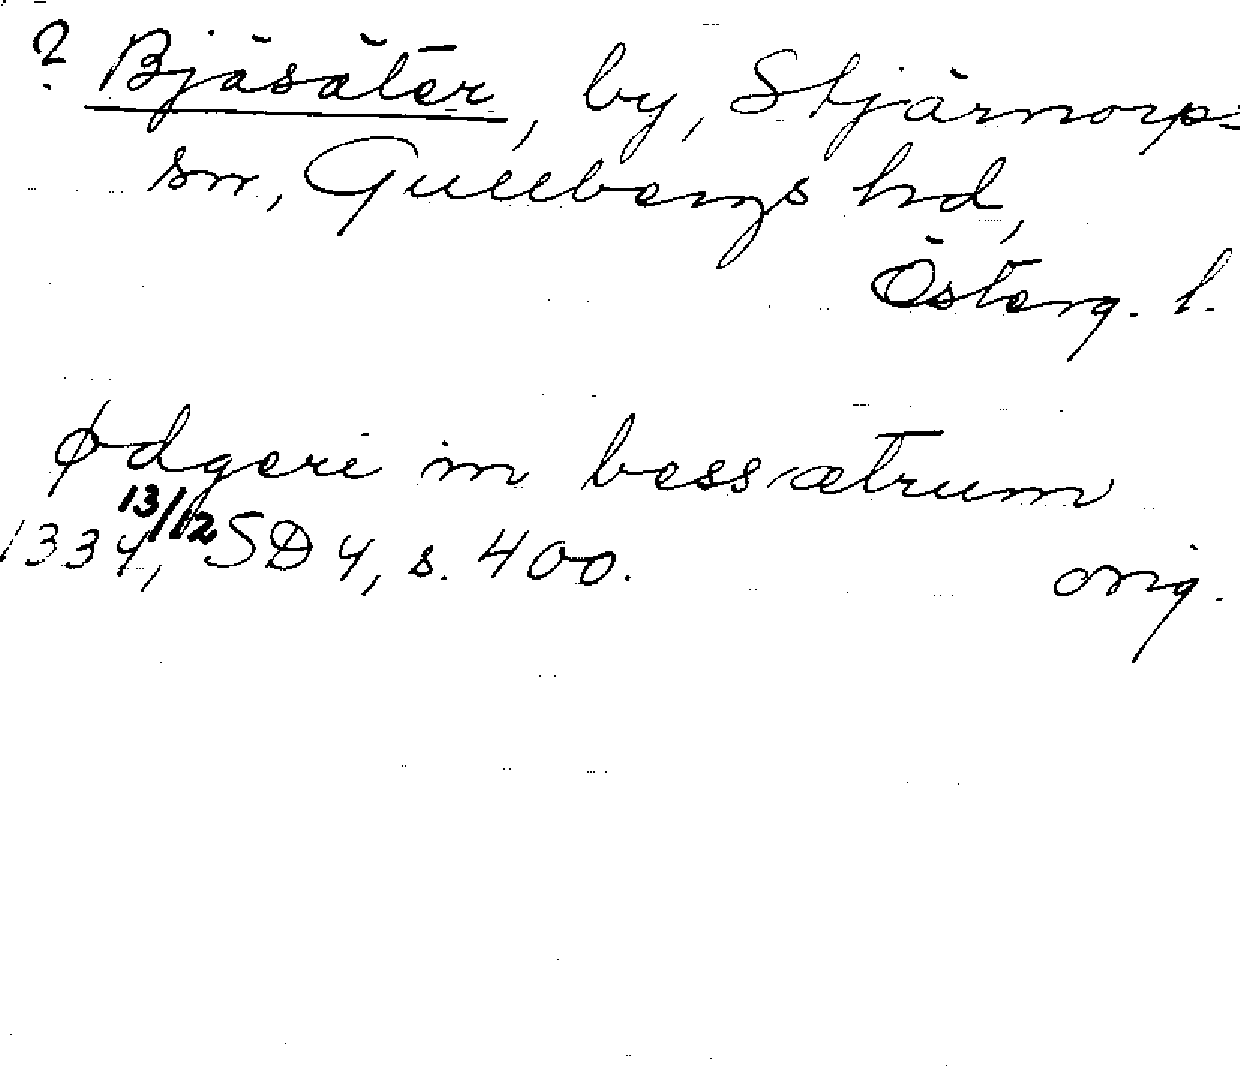 ? Bjäsäter, by, Stjärnorps
sn, Gullbergs hd,
Österg. l.
Ødgeri in bessætrum
1334 13/12, SD 4, s. 400. orig.